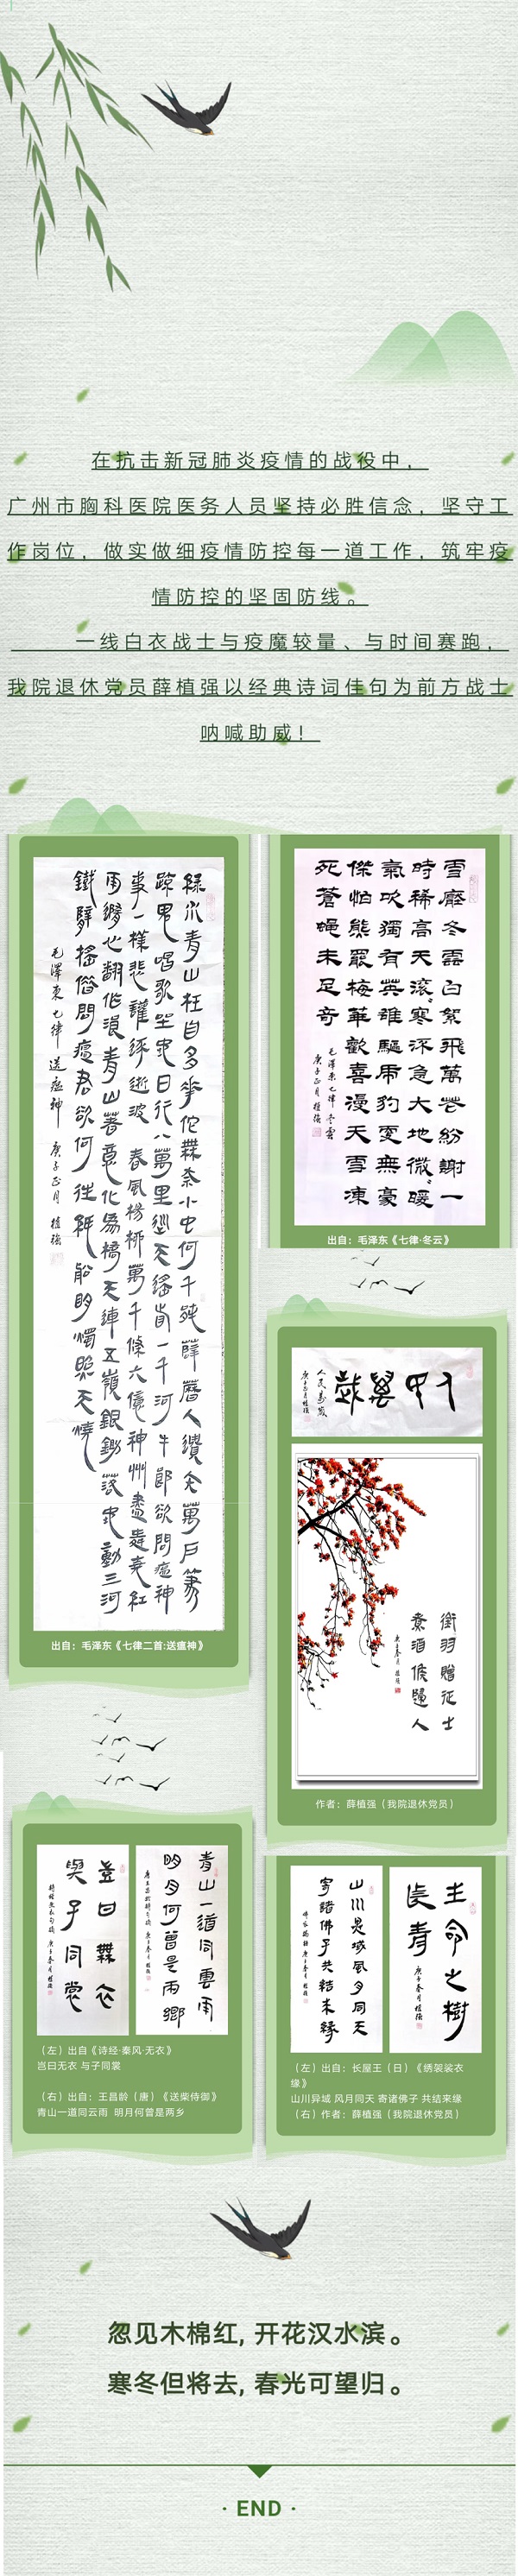 在抗击新冠肺炎疫情的战役中，
广州市胸科医院医务人员坚持必胜信念，坚守工
作岗位，做实做细疫情防控每一道工作，筑牢疫
情防控的坚固防线。
一线白衣战士与疫魔较量、与时间赛跑，
我院退休党员薛植强以经典诗词佳句为前方战士
呐喊助威！
綠水青山枉自多華佗無奈小虫何千村薜
藶人遺矢萬戶蕭
疏鬼唱歌坐地日行八萬里巡天遙看一千河牛郎欲問瘟神
事一樣悲歡逐逝波 春風楊柳萬千條六億神州盡舜堯紅
雨隨心翻作浪青山著意化為橋天連五嶺銀鋤落地動三河
鐵臂搖借問瘟君欲何往紙船明燭照天燒
毛澤東七律 送瘟神 庚子正月 植強
出自：毛泽东《七律二首:送瘟神》
雪壓冬雲白絮飛萬花紛謝一
時稀高天滾〻寒流急大地微〻暖
氣吹獨有英雄驅虎豹更無豪
傑怕熊羆梅華歡喜漫天雪凍
死蒼蝇未足奇
毛澤東七律冬雲
庚子正月 植強
出自：毛泽东《七律·冬云》
人民萬歲
庚子正月植強
衛羽贈征士
煮酒候歸人
庚子春月 植強
作者：薛植强（我院退休党员）
豈曰無衣
與子同裳
庚子春月植強
青山一道同雲雨
明月何曾是兩鄉
（左）出自《诗经·秦风·无衣》
岂曰无衣 与子同裳
（右）出自：王昌龄（唐）《送柴侍御》
青山一道同云雨 明月何曾是两乡
山川異域風月同天
寄諸佛子共結來緣
生命之樹
長青
庚子春月植強
（左）出自：长屋王（日）《绣袈裟衣
缘》
山川异域 风月同天 寄诸佛子 共结来缘
（右）作者：薛植强（我院退休党员）
忽见木棉红，开花汉水滨。
寒冬但将去，春光可望归。
· END ·